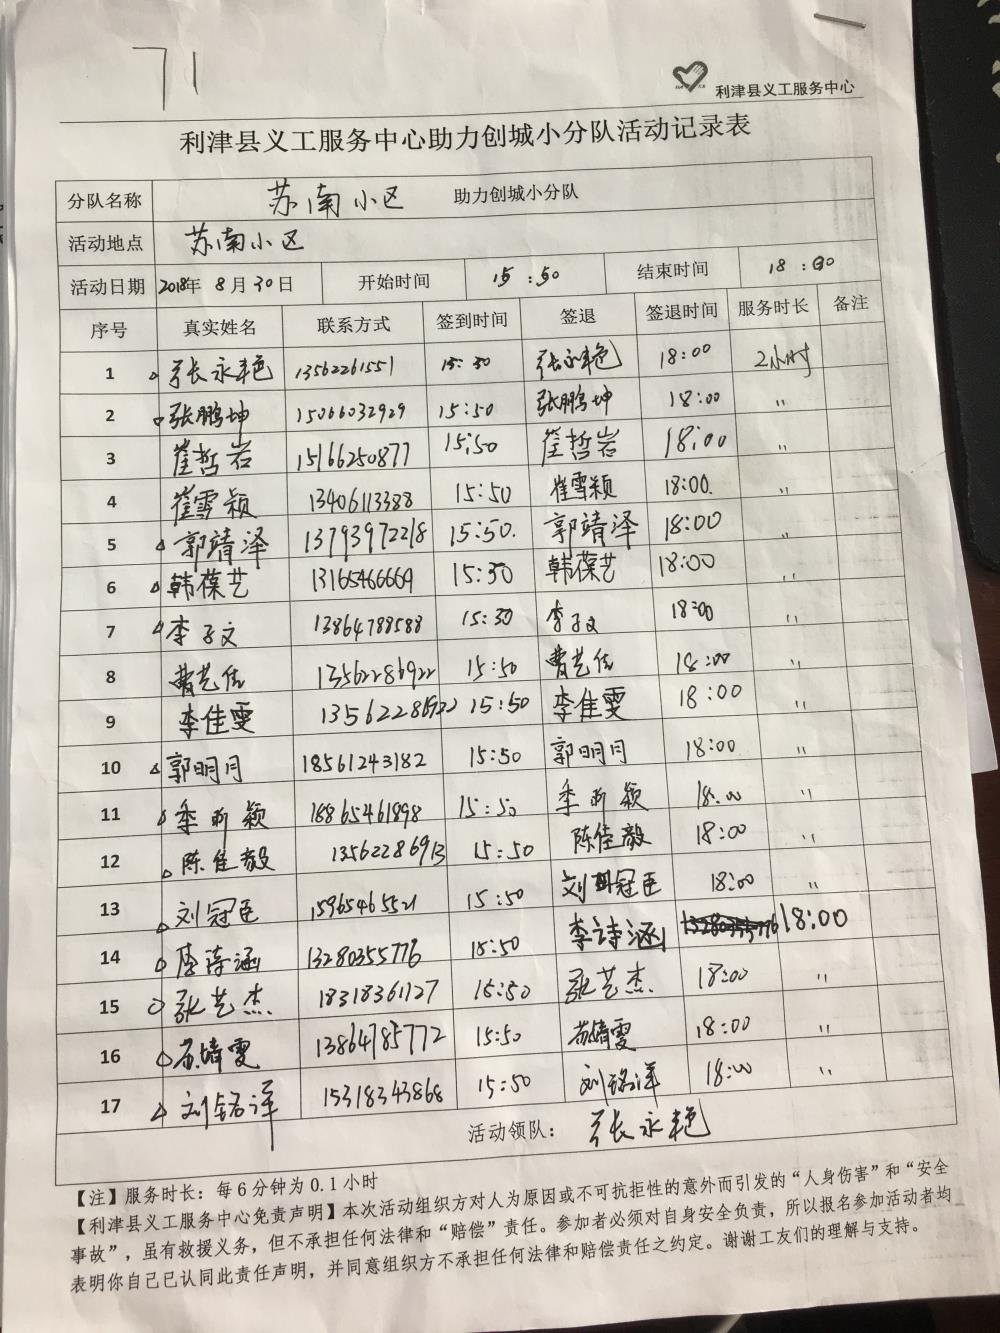 71
利津县义工服务中心
利津县义工服务中心助力创城小分队活动记录表
分队名称 苏南小区 助力创城小分队
活动地点 苏南小区
活动日期 2018年 8月30日 开始时间 15:50 结束时间 18:00
序号 真实姓名 联系方式 签到时间 签退 签退时间 服务时长 备注
1 张永艳 13562261551 15:50 张永艳 18:00 2小时
2 张鹏坤 15066032929 15:50 张鹏坤 18:00 〃
3 崔哲岩 15166250877 15:50 崔哲岩 18:00 〃
4 崔雪颖 13406113388 15:50 崔雪颖 18:00. 〃
5 郭靖泽 13793972218 15:50. 郭靖泽 18:00 〃
6 韩葆艺 13165466669 15:30 韩葆艺 18:00 〃
7 李子文 13864788588 15:30 李子文 18:00 〃
8 曹艺佳 13562286922 15:50 曹艺佳 18:00 〃
9 李佳雯 13562286922 15:50 李佳雯 18:00 〃
10 郭明月 18561243182 15:50 郭明月 18:00 〃
11 季昕颖 18865461898 15:50 季昕颖 18:00 〃
12 陈佳毅 13562286913 15:50 陈佳毅 18:00 〃
13 刘冠臣 15965465521 15:50 刘冠臣 18:00 〃
14 李诗涵 13280355776 15:50 李诗涵 13280355776 18:00
15 张艺杰 18318361127 15:50 张艺杰 18:00 〃
16 苏婧雯 13864785772 15:50 苏婧雯 18:00 〃
17 刘铭洋 15318343868 15:50 刘铭洋 18:00 〃
活动领队: 张永艳
【注】服务时长:每6分钟为0.1小时
【利津县义工服务中心免责声明】本次活动组织方对人为原因或不可抗拒性的意外而引发的“人身伤害”和“安全
事故”,虽有救援义务,但不承担任何法律和“赔偿”责任。参加者必须对自身安全负责,所以报名参加活动者均
表明你自己已认同此责任声明,并同意组织方不承担任何法律和赔偿责任之约定。谢谢工友们的理解与支持。